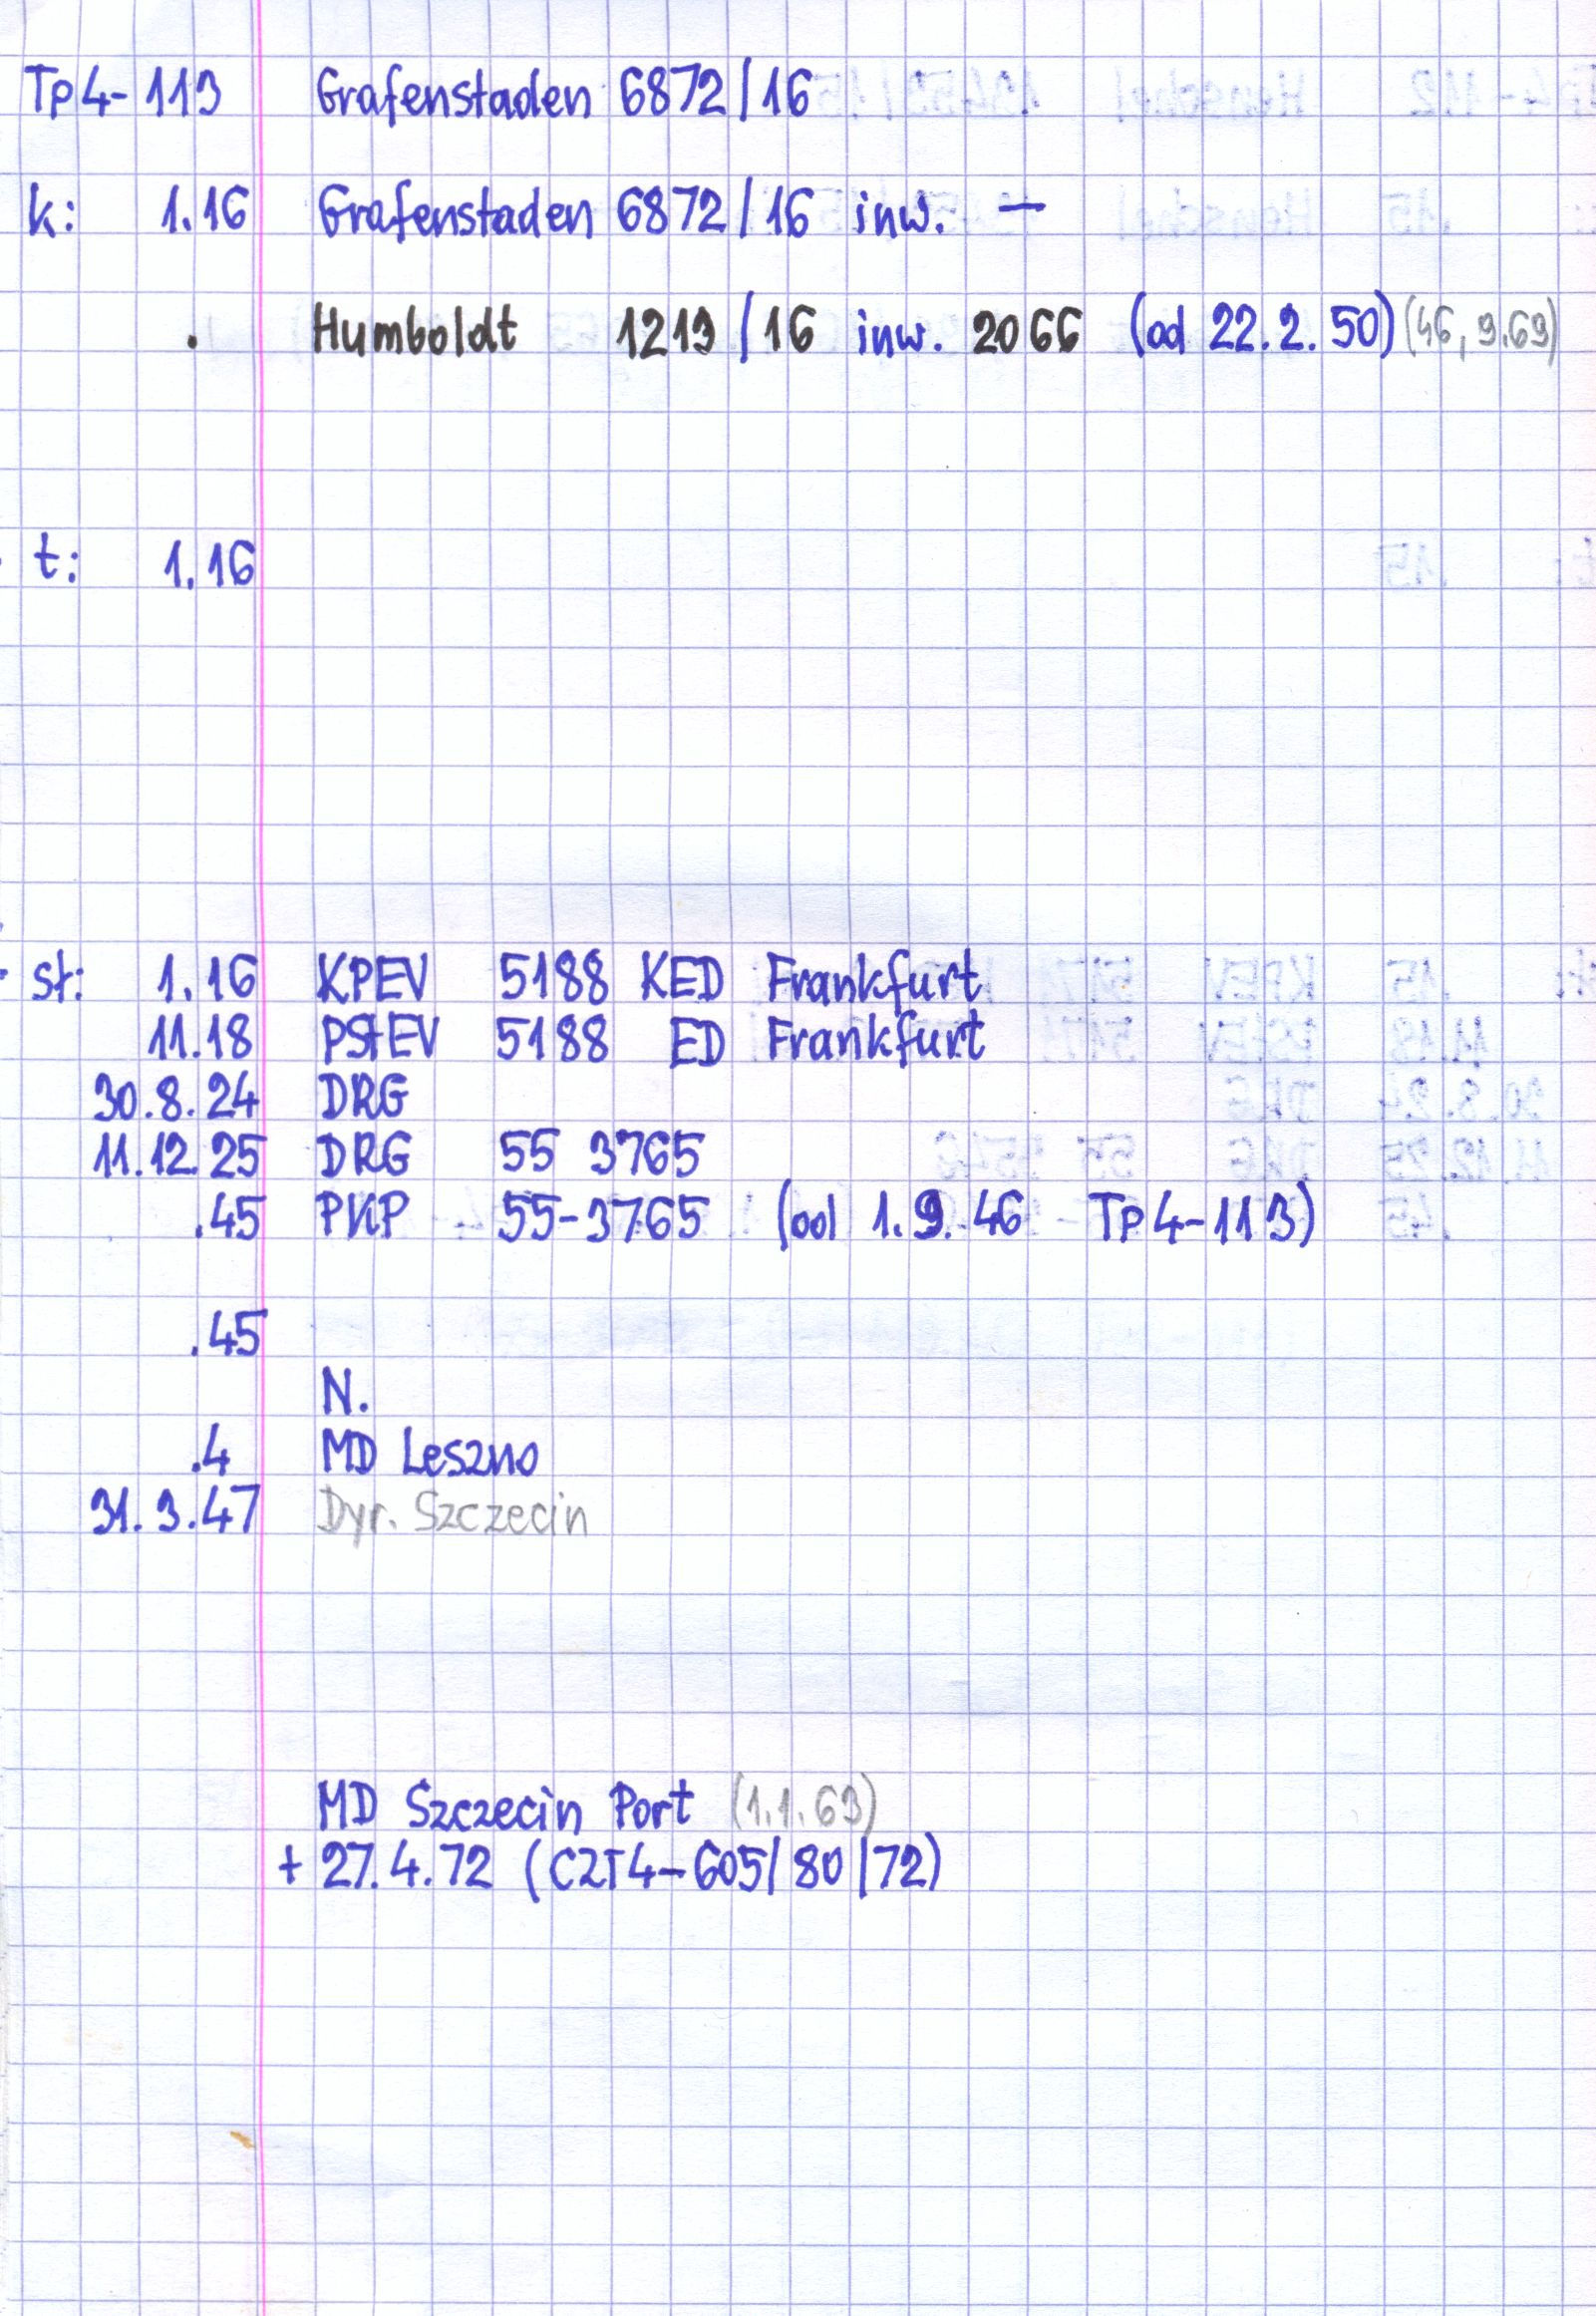 Tp4-113 Grafenstaden 6872/16
k: 1.16 Grafenstaden 6872/16 inw. —
. Humboldt 1213/16 inw. 2066 (od 22.2.50) (46, 9.69)
t: 1.16
st: 1.16 KPEV 5188 KED Frankfurt
11.18 PStEV 5188 ED Frankfurt
30.8.24 DRG
11.12.25 DRG 55 3765
.45 PKP 55-3765 (od 1.9.46 Tp4-113)
.45
N.
.4 MD Leszno
31.3.47 Dyr. Szczecin
MD Szczecin Port (1.1.63)
+ 27.4.72 (CZT4-605/80/72)